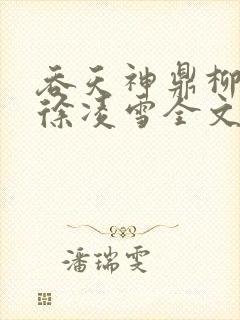 吞天神鼎柳
徐凌雪全文
潘瑞雯